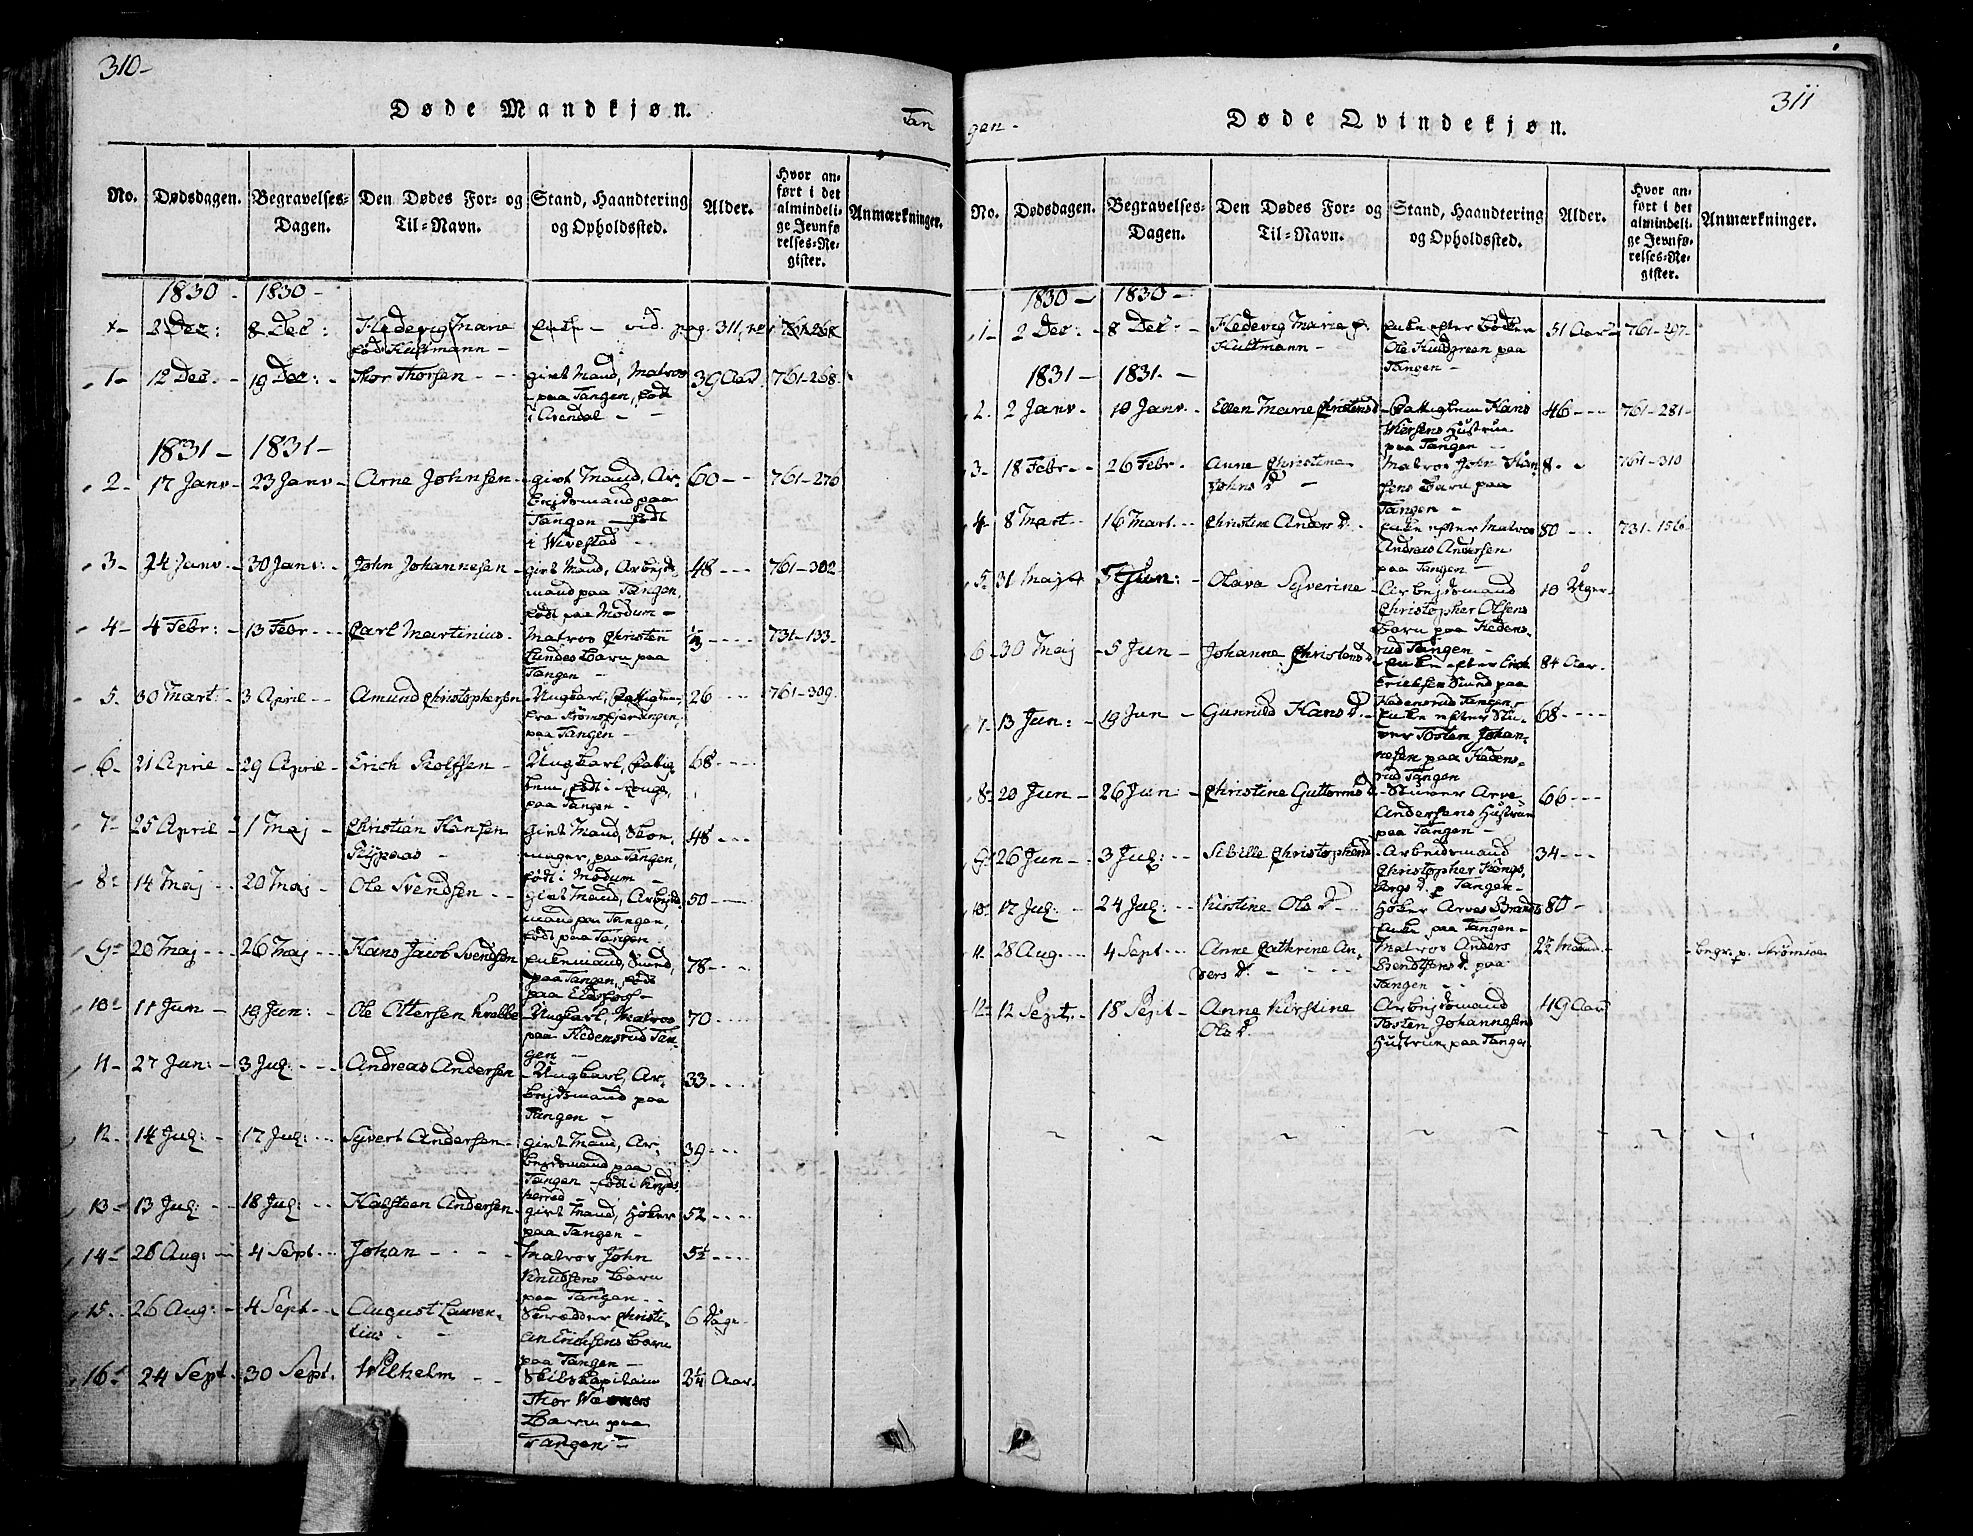 310-
Døde Mandkjøn.
Tan
No. Dødsdagen. Begravelses-Dagen. Den Dødes For- og Til-Navn. Stand, Haandtering og Opholdssted. Alder. Hvor anført i det almindelige Jevnførelses-Register. Anmærkninger.
1830 - 1830 -
2 Dec: 8 Dec: Hedevig Marie Enke - vid. pag. 311, 761-268
fød Kultmann -
1- 12 Dec. - 19 Dec: - Thor Thorsen - - givt Mand, Matros 39 Aar 761-268.
paa Tangen, født
i Arendal -
1831 - 1831 -
2- 17 Janv - 23 Janv - Arne Johnsen - givt Mand, Ar- 60 - - 761-276
bejdsmand paa
Tangen - født
i Wivestad
3- 24 Janv - 30 Janv: - John Johannesen - givt Mand, Arbejds- 48 - - - 761-302
mand paa Tangen,
født paa Modum -
4- 4 Febr: - 13 Febr - - - Carl Martinius - Matros Christen 731-133.
Lundes Barn paa
Tangen -
5. 30 Mart. - 3 April - - Amund Christophersen - Ungkarl, Fattiglem 26 - - - 761-309.
fra Strømsfjerdingen,
paa Tangen -
6- 21 April - 29 April - Erich Rolfsen - Ungkarl, Fattig- 68 - - - -
lem, født i
paa Tangen -
7- 25 April - 1 Maj - Christian Hansen givt Mand, Skoe- 48 - - -
mager, paa Tangen,
født i Modum -
8- 14 Maj - - 20 Maj - Ole Svendsen - - givt Mand, Arbejds- 50 - -
mand paa Tangen,
født paa Tangen
9- 20 Maj - - 26 Maj - Hans Jacob Svendsen Enkemand, 78 - - -
paa Tangen, født
paa
10- 11 Jun - 19 Jun: - Ole Ottersen Krabbe - Ungkarl, Matros 70 - - - -
paa Hedensrud Tan-
gen -
11- 27 Jun: - 3 Jul: - - - Andreas Andersen - Ungkarl, Ar- 33 - - - -
bejdsmand paa
Tangen -
12- 14 Jul: - 17 Jul: - - Syvert Andersen - givt Mand, Ar- 39 - - -
bejdsmand paa
Tangen - født i
herred
13- 13 Jul: - - 18 Jul: - - Halsteen Andersen - givt Mand, Høker 52 - - - -
paa Tangen -
14- 26 Aug: - - 4 Sept. - - Johan - - - - Matros John 5½ - - - -
Knudsens Barn
paa Tangen - -
15. 26 Aug: - 4 Sept. - - August Lauren- Skrædder Christi- 6 Dage -
tius - - an Ericksens Barn
paa Tangen -
16- 24 Sept. 30 Sept. Wilhelm - - Skibskapitain 2¼ Aar.
Thor
Barn paa
Tangen -
311
gen -
Døde Qvindekjøn.
No. Dødsdagen. Begravelses-Dagen. Den Dødes For- og Til-Navn. Stand, Haandtering og Opholdssted. Alder. Hvor anført i det almindelige Jevnførelses-Register. Anmærkninger.
1830 - 1830 -
1- 2 Dec: - 8 Dec: - Hedevig Marie f. Enke efter Bødker 51 Aar - 761-297.
Kultmann - Ole Hudgreen paa
Tangen -
1831 - 1831 -
2. 2 Janv - 10 Janv - - Ellen Marie Christensd. - Fattiglem Hans 46 - - - 761-281 -
Hustrue
paa Tangen - -
3- 18 Febr - - 26 Febr. - Anne Christine Matros John Han- 8 - - 761-310
Johns D. - sens Barn paa
Tangen -
4- 8 Mart. - 16 Mart. - - Christine Anders D. - - Enke efter Matros 80 - - - 731-156
Andreas Andersen
paa Tangen -
5- 31 Maj - 5 Jun: - Olava Syverine - Arbejdsmand 10 Uger -
Christopher Olsens
Barn paa Hedens-
rud Tangen -
6- 30 Maj - 5 Jun - Johanne Christensd. Enke efter Erick 84 Aar -
Ericksen Lund paa
Hedensrud Tangen -
7- 13 Jun: - 19 Jun - Gunnild Hans D. - Enke efter Stu- 68 - - - -
ver Tosten Johan-
nesen paa Hedens-
rud Tangen
8- 20 Jun - 26 Jun: - Christine Guttormsd. - Stuver Arve 66 - - -
Andersens Hustrue
paa Tangen -
9- 26 Jun - - 3 Jul: - - Sibille Christophersd. - Arbeidsmand 34 - - -
Christopher Kongs-
bergs D. p. Tangen -
10- 17 Jul: - 24 Jul: - - Kirstine Ols D. - Høker Arves Brandts 80 -
Enke paa Tangen -
11. 28 Aug. - - - 4 Sept - - Anne Cathrine An- Matros Anders 2½ Maaned - - begr. p. Strømsøe
ders D. - - Bendtsens D. paa
Tangen - -
12- 12 Sept. - 18 Sept - Anne Kirstine Arbejdsmand 49 Aar
Ols D. - Tosten Johannesens
Hustrue, paa Tangen